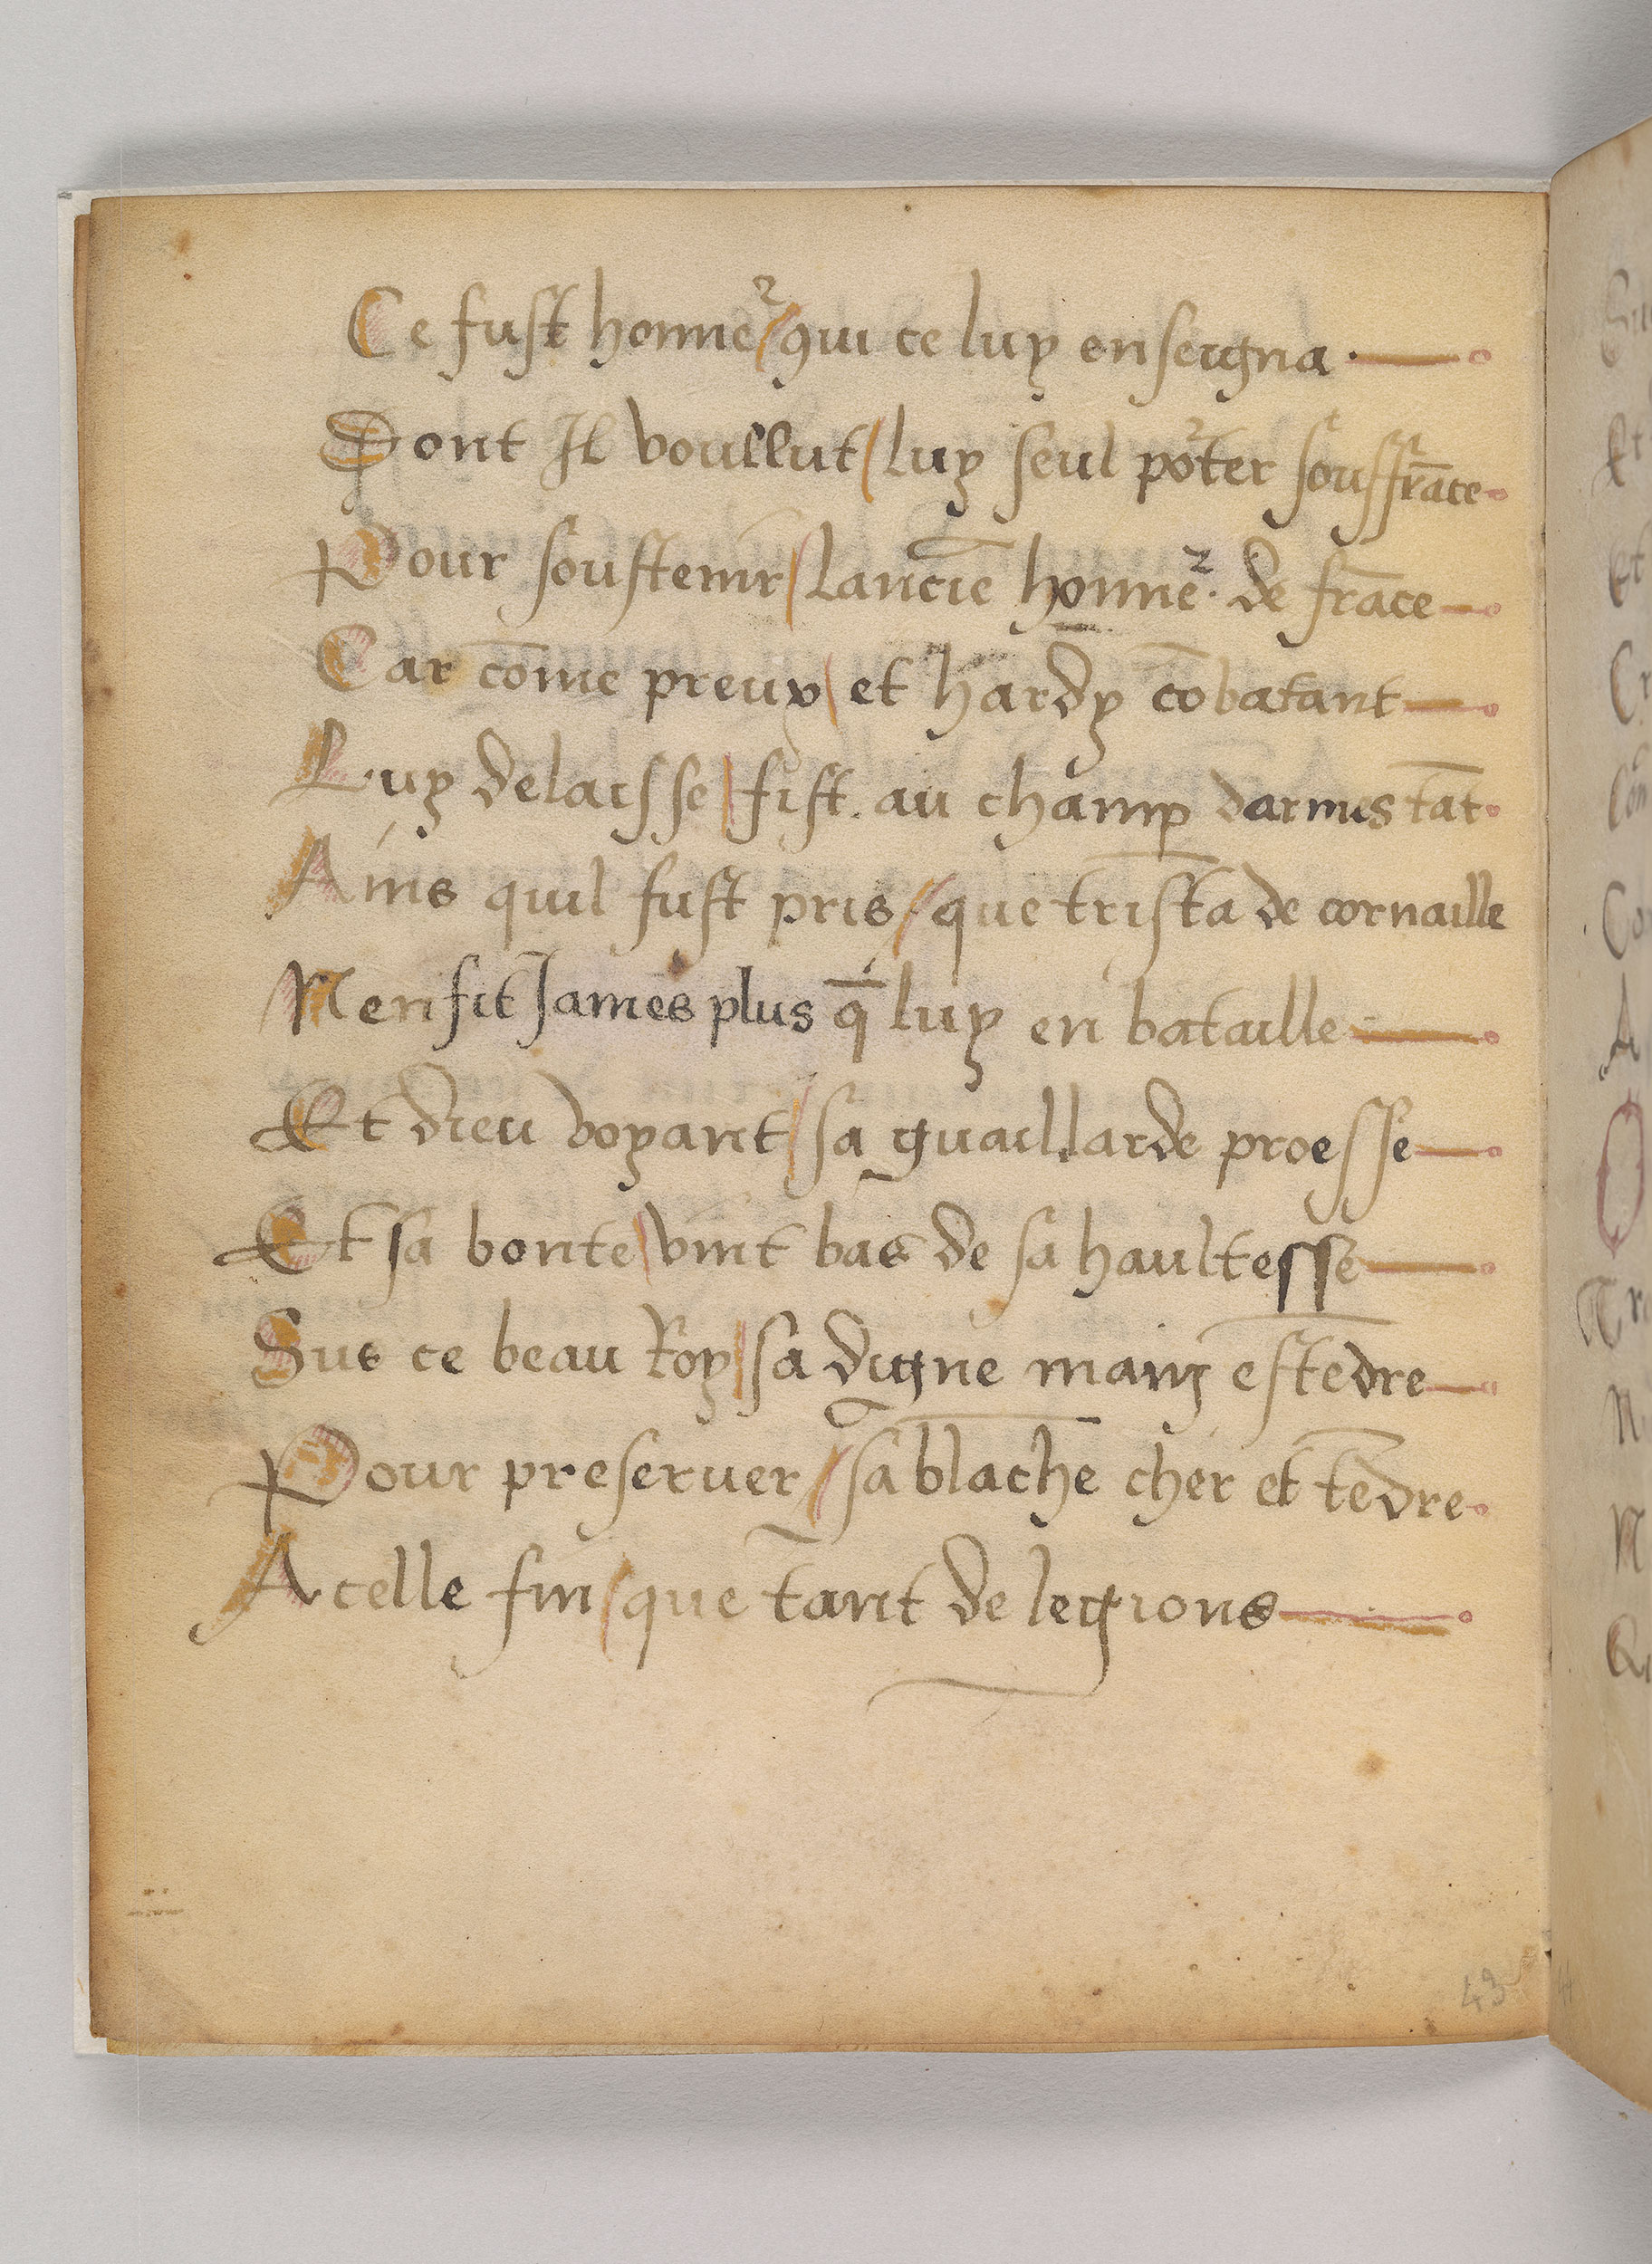 Ce fust honneᷣ / qui ce luy enseigna ·
Dont Il voullut / luy seul poᷣter souffrāce
Pour soustenir / Lanciē honneᷣ · de frāce
Car cōme preux / et hardy cōbatant
Luy delaisse / fist . au champ darmes tāt
Ains quil fust pris / que tristā de cornaille
Nen fit James plus q̄ luy en bataille
Et dieu voyant / sa guaillarde proesse
Et sa bonte / vint bas de sa haultesse
Sus ce beau Roy / sa digne main estēdre
Pour preseruer / sa blāche cher et tēdre
A celle fin / que tant de legions
43